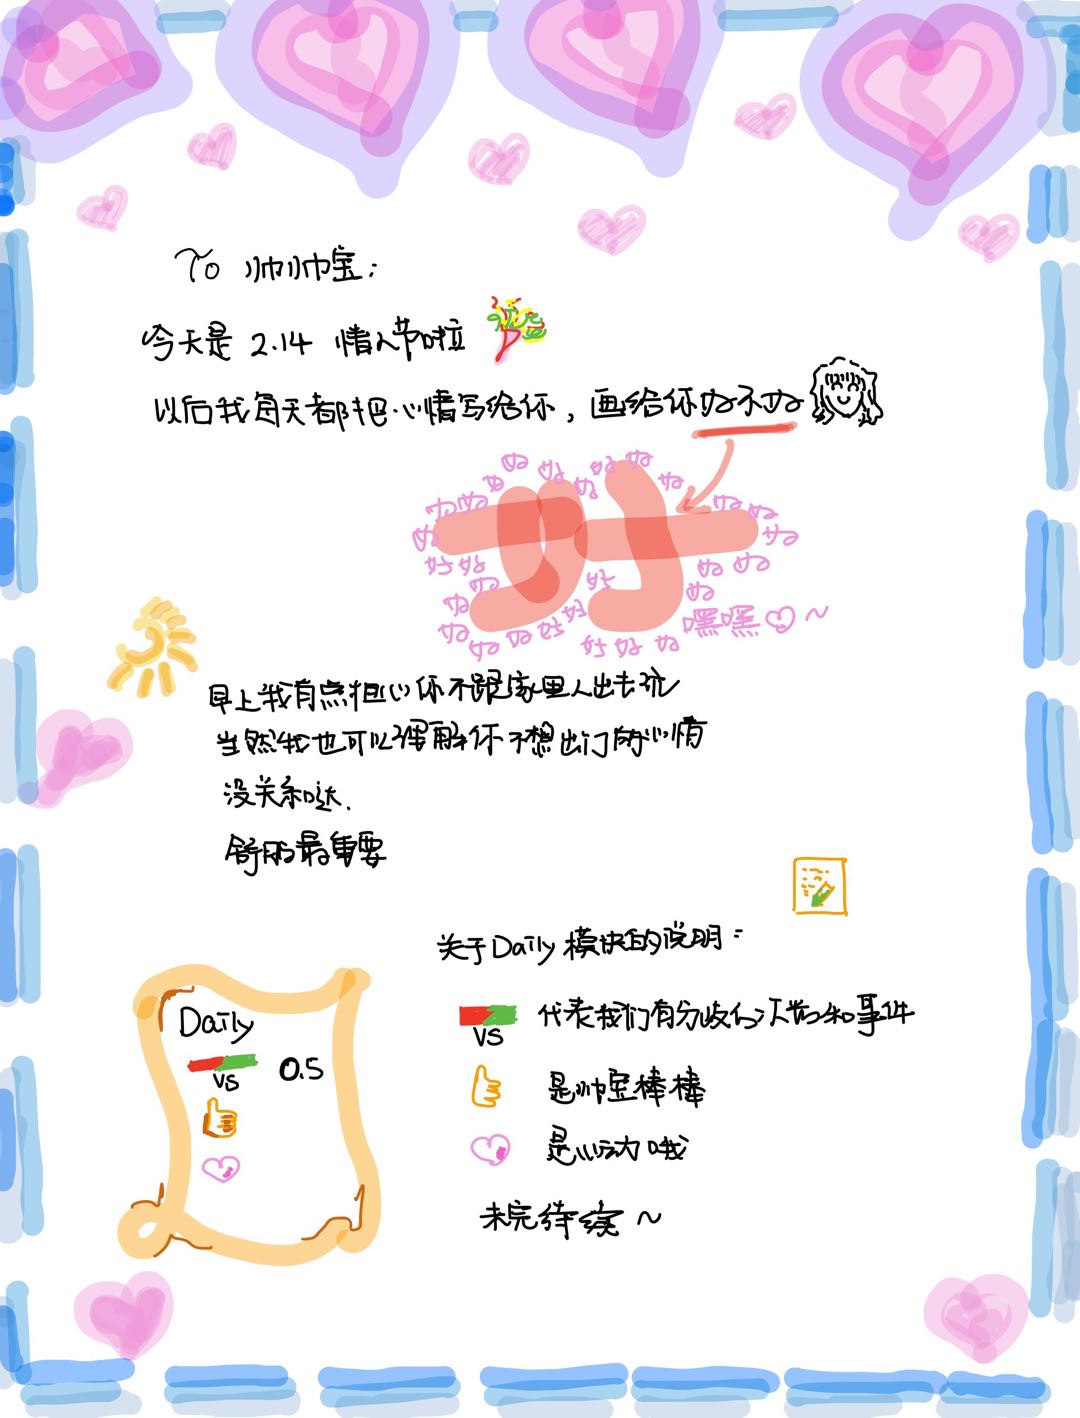 To 帅帅宝：
今天是 2.14 情人节啦
以后我每天都把心情写给你，画给你好不好
好
好好好好好好好好好好好好好好好好好好好好好好好好好好好好好好好好好好
嘿嘿～
早上我有点担心你不跟家里人出去玩
当然我也可以理解你不想出门的心情
没关系哒.
舒服最重要
关于Daily模块的说明：
VS 代表我们有分歧的次数和事件
是帅宝棒棒
是心动哦
未完待续～
Daily
VS 0.5